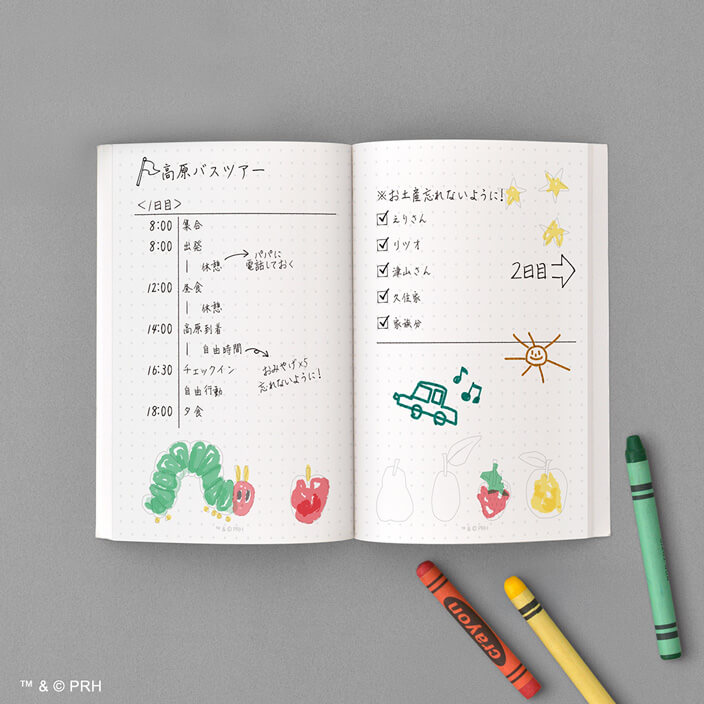 高原バスツアー
<1日目>
8:00 集合
8:00 出発
休憩
パパに
電話しておく
12:00 昼食
休憩
14:00 高原到着
自由時間
16:30 チェックイン
おみやげ×5
忘れないように!
自由行動
18:00 夕食
™ & © PRH
※お土産忘れないように!
えりさん
リツオ
津山さん
久住家
家族分
2日目
™ & © PRH
crayon
™ & © PRH